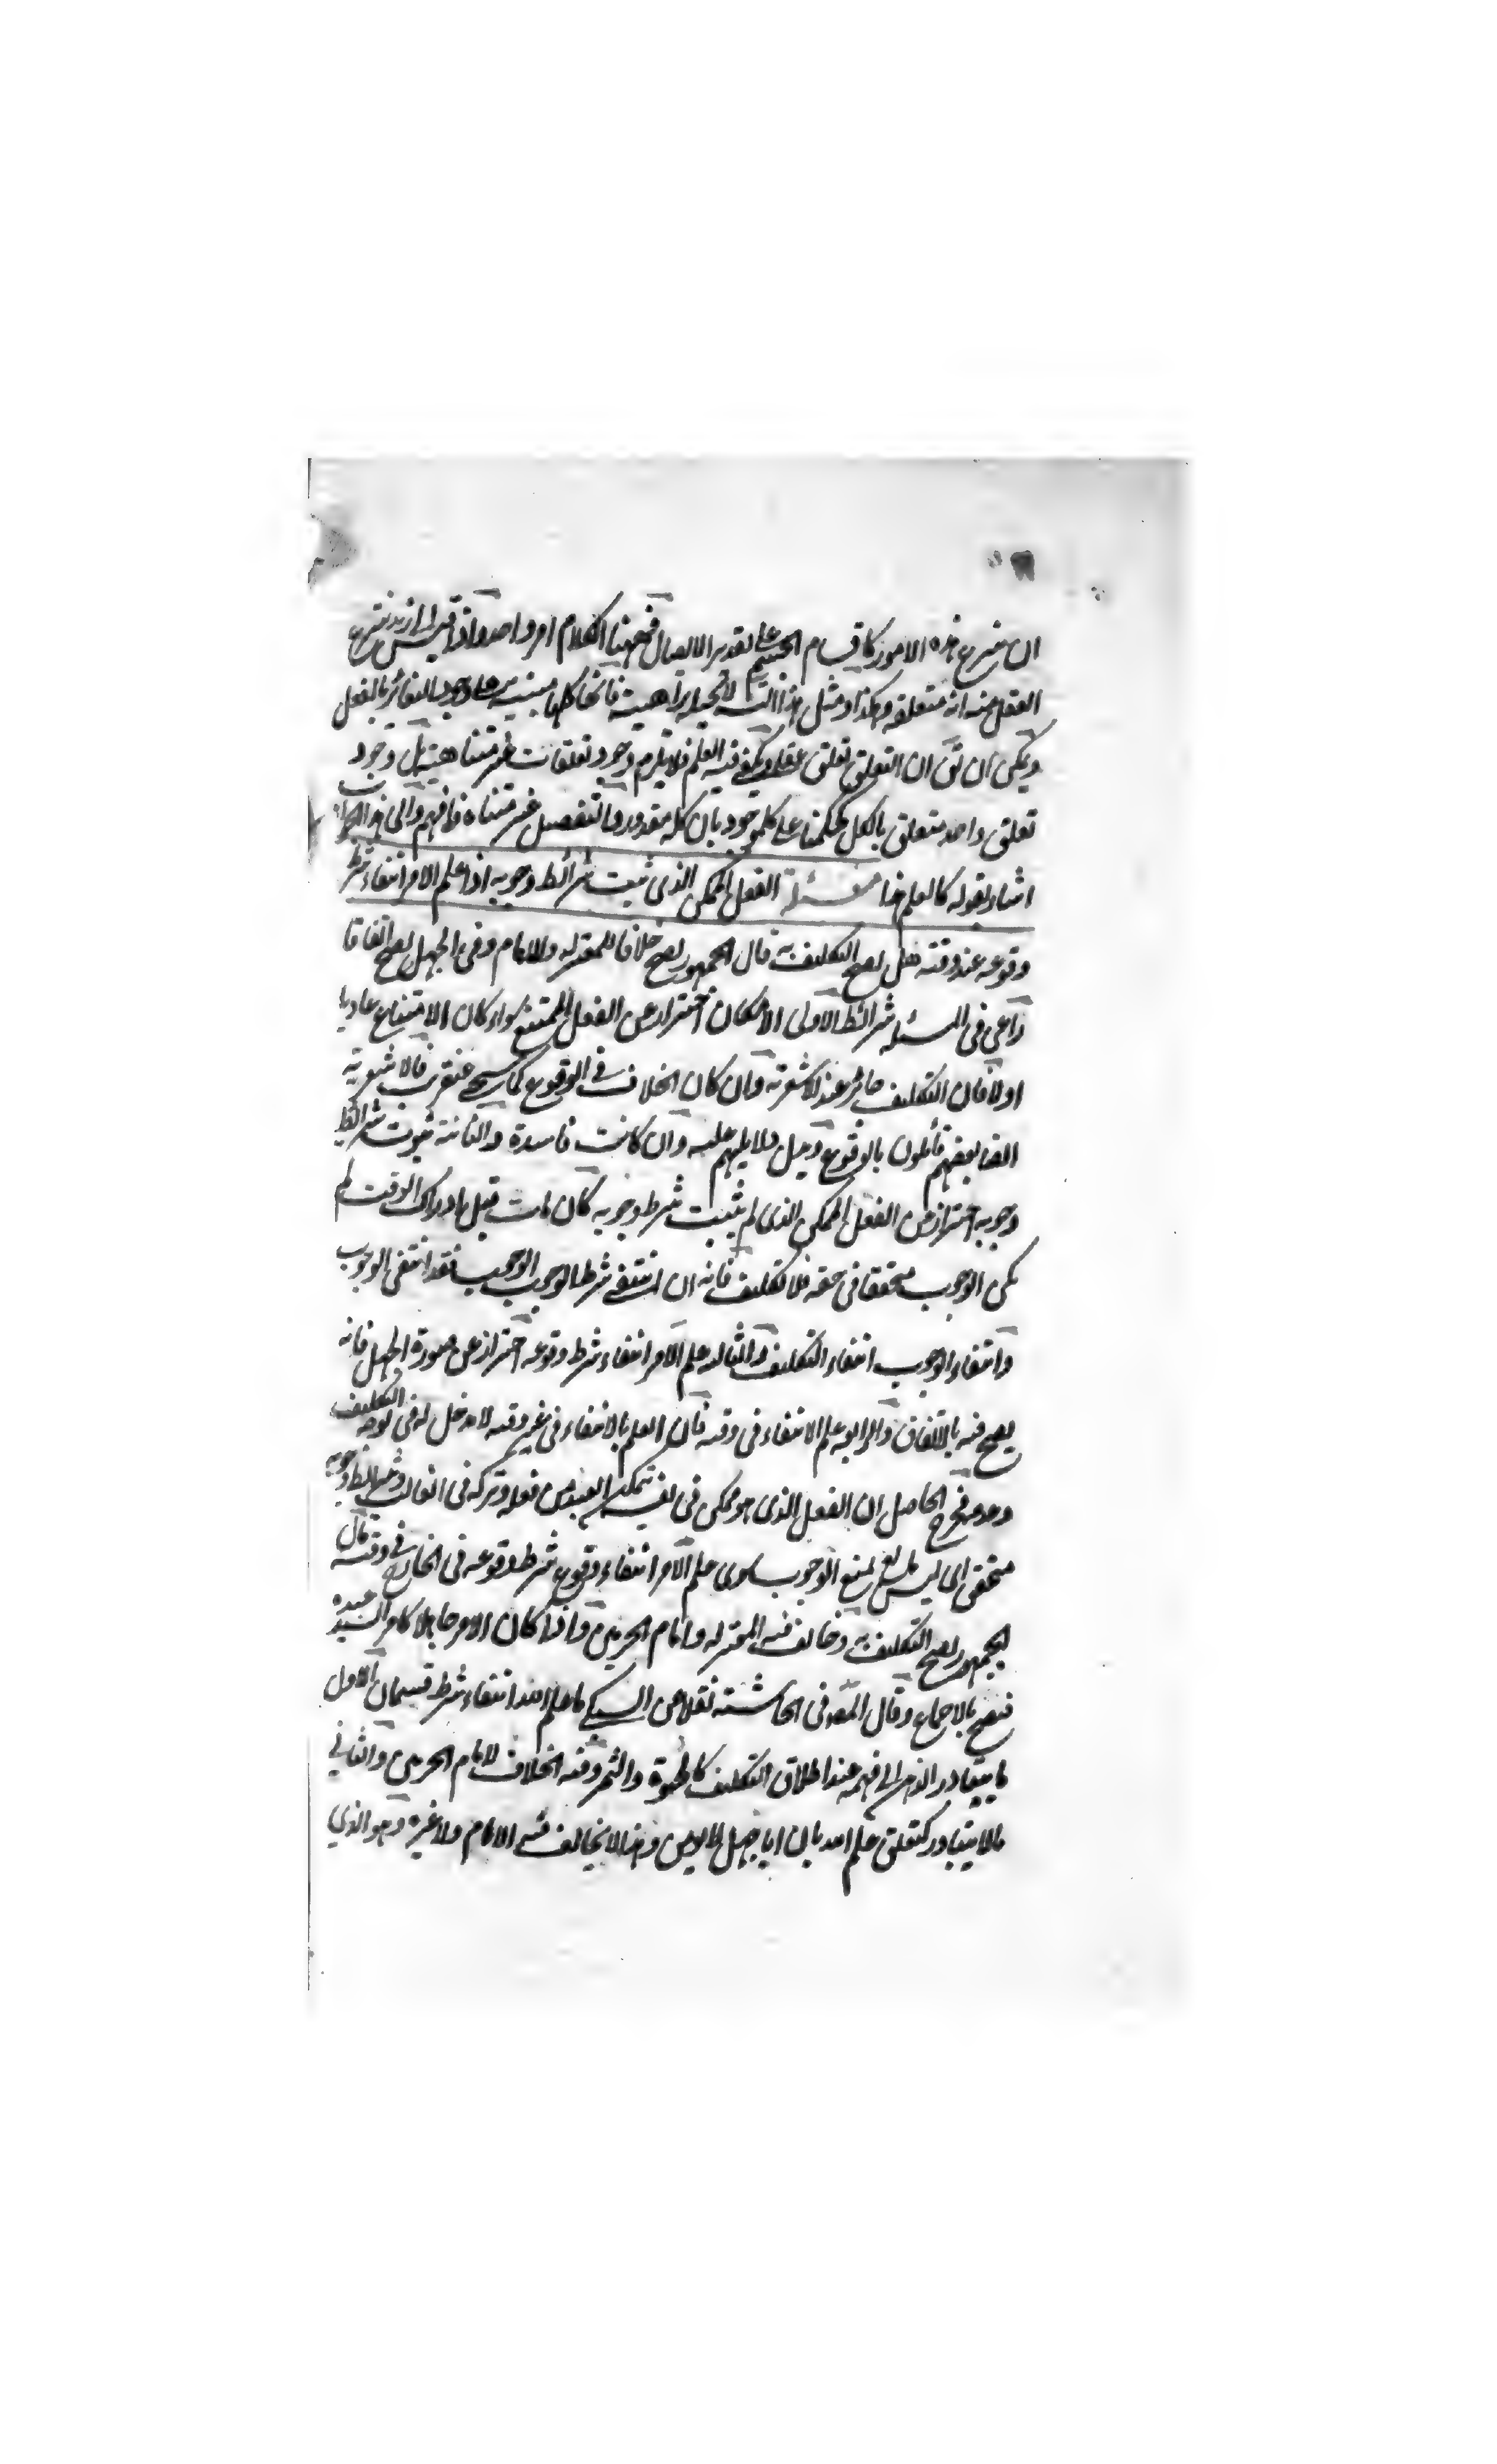 ان ينتزع هذه الامور كاقسام الجسم على تقدير الاتصال فههنا الكلام امر واحد واذا قيس الى زيد ينتزع
العقل منه انه متعلقه وهكذا ومثل هذا التـ لا تحيله براهينه فانها كلها مبنية على وجود التغائر بالفعل
ويمكن ان يق ان التعلق تعلق عقلي ويكفي فيه العلم فلا يلزم وجود تعلقات غير متناهية بل وجود
تعلق واحد متعلق بالكل كحكمنا على كل موجود بان كله مقدور والتفصيل غير متناه فافهم والى هذا الجواب
اشار بقوله كالعلم هذا مسئلة الفعل الممكن الذي ثبت شرائط وجوبه اذا علم الامر انتفاء شرط
وقوعه عند وقته هل يصح التكليف به قال الجمهور يصح خلافا للمعتزلة والامام وفي الجهل يصح اتفاقا
راعى في المسئلة شرائط الاولى الامكان احتراز عن الفعل الممتنع سواء كان الامتناع عاديا
اولا فان التكليف جائز عند الاشعرية وان كان الخلاف في الوقوع كما سيجئ عنقريب فالاشعرية
ايضا بعضهم قائلون بالوقوع ودليل دلايلهم عليه وان كانت فاسدة والثانية ثبوت شرائط
وجوبه احتراز عن الفعل الممكن الذي لم يثبت شرط وجوبه كأن مات قبل ادراك الوقت لم
يكن الوجوب متحققا في حقه فلا تكليف فانه ان انتفى شرط الوجوب الوجوب فقد انتفى الوجوب
وانتفاء الوجوب انتفاء التكليف والثالثة علم الامر انتفاء شرط وقوعه احتراز عن صورة الجهل فانه
يصح فيه بالاتفاق والرابعة علم الانتفاء في وقته فان العلم بالانتفاء في غير وقته لا مدخل له في توجه التكليف
وعدمه فخرج الحاصل ان الفعل الذي هو ممكن في نفسه يتمكن العبد من فعله وتركه في الغالب وشرائط وجوبه
متحقق اى ليس مانع يمنع الوجوب سوى علم الامر انتفاء وقوع شرط وقوعه في الخارج في وقته قال
الجمهور يصح التكليف به وخالف فيه المعتزلة وامام الحرمين واذا كان الامر جاهلا كامر السيد عبده
فيصح بالاجماع وقال المصـ في الحاشية نقلا عن السبكي ما علم الله انتفاء شرط قسمان الاول
ما يتبادر الذهن الى فهمه عند اطلاق التكليف كالحيوة والتمييز وفيه الخلاف لامام الحرمين والثاني
ما لا يتبادر كتعلق علم الله بان ابا جهل لا يؤمن وهذا لا يخالف فيه الامام ولا غيره وهو الذي